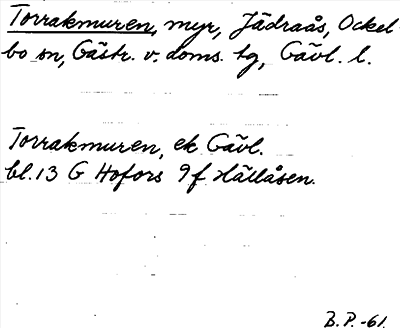 Torrakmuren, myr, Jädraås, Ockel-
bo sn, Gästr. v. doms. tg, Gävl. l.
Torrakmuren, ek Gävl.
bl. 13 G Hofors 9f Hällåsen.
B.P.-61.